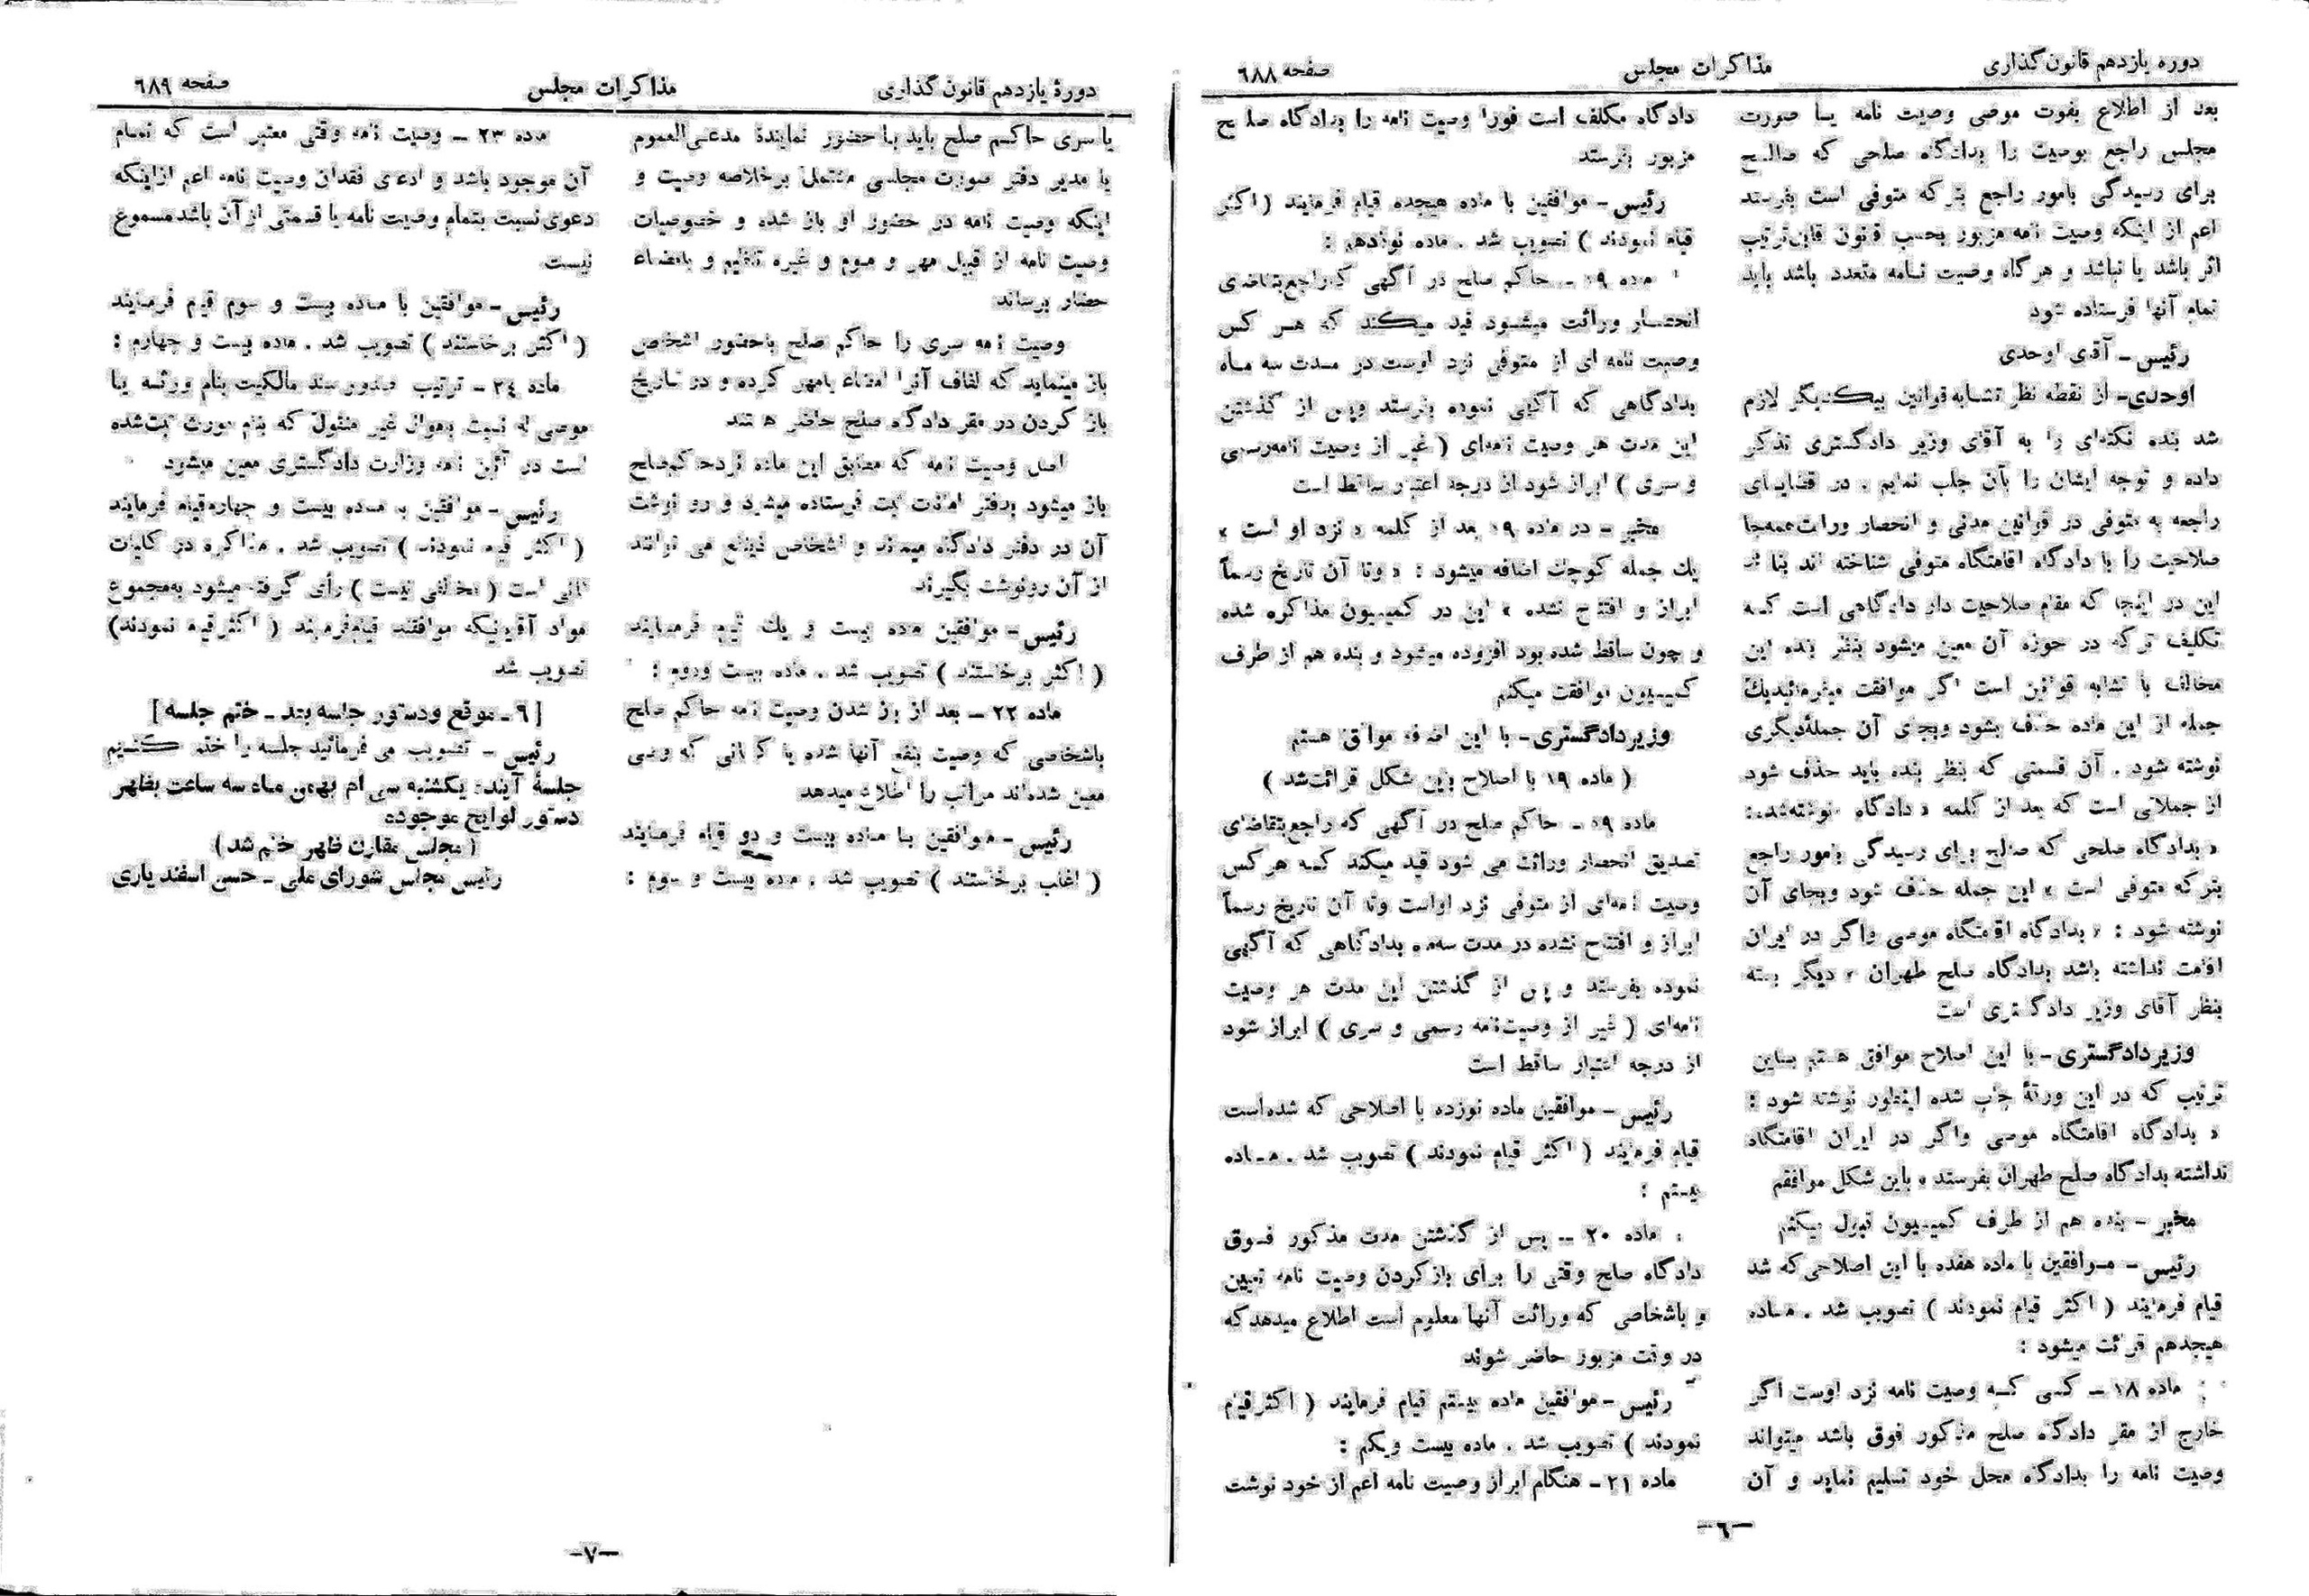 دوره یازدهم قانون گذاری
مذاکرات مجلس
صفحه ٦٨٨
بعد از اطلاع بفوت موصی وصیت نامه یا صورت
مجلس راجع بوصیت را بدادگاه صلحی که صالح
برای رسیدگی بامور راجع بترکه متوفی است بفرستد
اعم از اینکه وصیت نامه مزبور بحسب قانون قابل ترتیب
اثر باشد یا نباشد و هرگاه وصیت نامه متعدد باشد باید
تمام آنها فرستاده شود
رئیس – آقای اوحدی
اوحدی – از نقطه نظر تشابه قوانین بیکدیگر لازم
شد بنده نکته‌ای را به آقای وزیر دادگستری تذکر
داده و توجه ایشان را بآن جلب نمایم . در قضایای
راجعه به متوفی در قوانین مدنی و انحصار وراثت همه‌جا
صلاحیت را با دادگاه اقامتگاه متوفی شناخته اند بنا بر
این در اینجا که مقام صلاحیت دار دادگاهی است که
تکلیف ترکه در حوزه آن معین میشود بنظر بنده این
مخالف با تشابه قوانین است اگر موافقت میفرمائید یک
جمله از این ماده حذف بشود وبجای آن جملهٔ دیگری
نوشته شود . آن قسمتی که بنظر بنده باید حذف شود
از جملاتی است که بعد از کلمه « دادگاه نوشته شده :
« بدادگاه صلحی که صالح برای رسیدگی بامور راجع
بترکه متوفی است » این جمله حذف شود وبجای آن
نوشته شود : « بدادگاه اقامتگاه موصی واگر در ایران
اقامت نداشته باشد بدادگاه صلح طهران » دیگر بسته
بنظر آقای وزیر دادگستری است
وزیر دادگستری – با این اصلاح موافق هستم باین
ترتیب که در این ورقهٔ چاپ شده اینطور نوشته شود :
« بدادگاه اقامتگاه موصی واگر در ایران اقامتگاه
نداشته بدادگاه صلح طهران بفرستد » باین شکل موافقم
مخبر – بنده هم از طرف کمیسیون قبول میکنم
رئیس – موافقین با ماده هفده با این اصلاحی که شد
قیام فرمایند ( اکثر قیام نمودند ) تصویب شد . ماده
هیجدهم قرائت میشود :
ماده ١٨ – کسی که وصیت نامه نزد اوست اگر
خارج از مقر دادگاه صلح مذکور فوق باشد میتواند
وصیت نامه را بدادگاه محل خود تسلیم نماید و آن
دادگاه مکلف است فورا وصیت نامه را بدادگاه صلح
مزبور بفرستد
رئیس – موافقین با ماده هیجده قیام فرمایند ( اکثر
قیام نمودند ) تصویب شد . ماده نوزدهم :
ماده ١٩ – حاکم صلح در آگهی که راجع بتقاضای
انحصار وراثت میشود قید میکند که هر کس
وصیت نامه ای از متوفی نزد اوست در مدت سه ماه
بدادگاهی که آگهی نموده بفرستد وپس از گذشتن
این مدت هر وصیت نامه‌ای ( غیر از وصیت نامه رسمی
و سری ) ابراز شود از درجه اعتبار ساقط است
مخبر – در ماده ١٩ بعد از کلمه « نزد او است »
یک جمله کوچک اضافه میشود : « وتا آن تاریخ رسماً
ابراز و افتتاح نشده » این در کمیسیون مذاکره شده
و چون ساقط شده بود افزوده میشود و بنده هم از طرف
کمیسیون موافقت میکنم
وزیر دادگستری – با این اضافه موافق هستم
( ماده ١٩ با اصلاح باین شکل قرائت شد )
ماده ١٩ – حاکم صلح در آگهی که راجع بتقاضای
تصدیق انحصار وراثت می شود قید میکند که هر کس
وصیت نامه‌ای از متوفی نزد اواست وتا آن تاریخ رسماً
ابراز و افتتاح نشده در مدت سه ماه بدادگاهی که آگهی
نموده بفرستد و پس از گذشتن این مدت هر وصیت
نامه‌ای ( غیر از وصیت‌نامه رسمی و سری ) ابراز شود
از درجه اعتبار ساقط است
رئیس – موافقین ماده نوزده با اصلاحی که شده‌است
قیام فرمایند ( اکثر قیام نمودند ) تصویب شد . ماده
بیستم :
ماده ٢٠ – پس از گذشتن مدت مذکور فوق
دادگاه صلح وقتی را برای بازکردن وصیت نامه تعیین
و باشخاصی که وراثت آنها معلوم است اطلاع میدهد که
در وقت مزبور حاضر شوند
رئیس – موافقین ماده بیستم قیام فرمایند ( اکثر قیام
نمودند ) تصویب شد . ماده بیست ویکم :
ماده ٢١ – هنگام ابراز وصیت نامه اعم از خود نوشت
–٦–
دورهٔ یازدهم قانون گذاری
مذاکرات مجلس
صفحه ٦٨٩
یا سری حاکم صلح باید با حضور نمایندهٔ مدعی‌العموم
یا مدیر دفتر صورت مجلسی مشتمل برخلاصه وصیت و
اینکه وصیت نامه در حضور او باز شده و خصوصیات
وصیت نامه از قبیل مهر و موم و غیره تنظیم و بامضاء
حضار برساند
وصیت نامه سری را حاکم صلح باحضور اشخاص
باز مینماید که لفاف آنرا امضاء یا مهر کرده و در تاریخ
باز کردن در مقر دادگاه صلح حاضر هستند
اصل وصیت نامه که مطابق این ماده نزد حاکم صلح
باز میشود بدفتر امانات ثبت فرستاده میشود و رو نوشت
آن در دفتر دادگاه میماند و اشخاص ذینفع می توانند
از آن رونوشت بگیرند
رئیس – موافقین ماده بیست و یک قیام فرمایند
( اکثر برخاستند ) تصویب شد . ماده بیست ودوم :
ماده ٢٢ – بعد از باز شدن وصیت نامه حاکم صلح
باشخاصی که وصیت بنفع آنها شده یا کسانی که وصی
معین شده‌اند مراتب را اطلاع میدهد
رئیس – موافقین با ماده بیست و دو قیام فرمایند
( اغلب برخاستند ) تصویب شد . ماده بیست و سوم :
ماده ٢٣ – وصیت نامه وقتی معتبر است که تمام
آن موجود باشد و ادعای فقدان وصیت نامه اعم ازاینکه
دعوی نسبت بتمام وصیت نامه یا قسمتی از آن باشد مسموع
نیست
رئیس – موافقین با ماده بیست و سوم قیام فرمایند
( اکثر برخاستند ) تصویب شد . ماده بیست و چهارم :
ماده ٢٤ – ترتیب صدور سند مالکیت بنام ورثه یا
موصی له نسبت باموال غیر منقول که بنام مورث ثبت شده
است در آئین نامه وزارت دادگستری معین میشود
رئیس – موافقین با ماده بیست و چهار قیام فرمایند
( اکثر قیام نمودند ) تصویب شد . مذاکره در کلیات
ثانی است ( مخالفی نیست ) رأی گرفته میشود به‌مجموع
مواد آقایانیکه موافقند قیام فرمایند ( اکثر قیام نمودند )
تصویب شد
[ ٩ – موقع ودستور جلسه بعد – ختم جلسه ]
رئیس – تصویب می فرمائید جلسه را ختم کنیم
جلسهٔ آینده یکشنبه سی ام بهمن ماه سه ساعت بظهر
دستور لوایح موجوده
( مجلس مقارن ظهر ختم شد )
رئیس مجلس شورای ملی – حسن اسفندیاری
–٧–